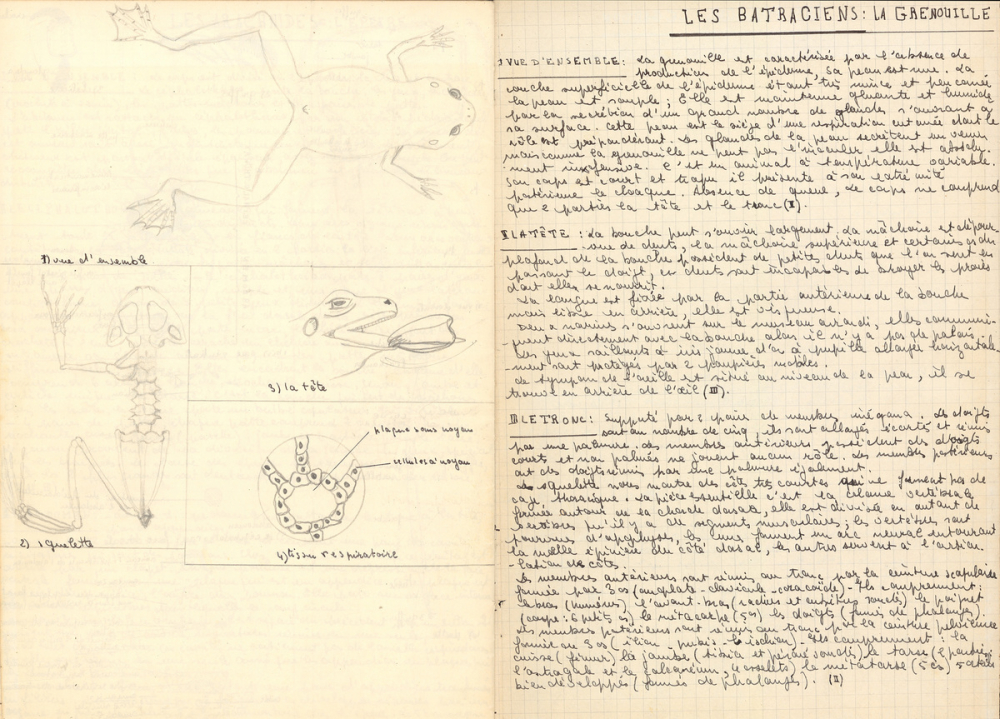 1) vue d'ensemble
2) squelette
3) la tête
plaque sans noyau
cellules à noyau
4) tissu respiratoire
LES BATRACIENS: LA GRENOUILLE
I VUE D'ENSEMBLE: La grenouille est caractérisée par l'absence de
production de l'épiderme, sa peau est nue. La
couche superficielle de l'épiderme étant très mince et peu cornée
la peau est souple; Elle est maintenue gluante et humide
par la secrétion d'un grand nombre de glandes s'ouvrant à
sa surface. Cette peau est le siège d'une respiration cutanée dont le
rôle est prépondérant. Les glandes de la peau secrètent un venin
mais comme la grenouille ne peut pas l'inoculer elle est absolu-
ment inoffensive. C'est un animal à température variable.
Son corps est court et trapu il présente à son extrémité
postérieure le cloaque. Absence de queue, Le corps ne comprend
que 2 parties la tête et le tronc (I).
II LA TÊTE: La bouche peut s'ouvrir largement. La mâchoire est dépour-
vue de dents, la mâchoire supérieure et certains os du
plafond de la bouche possèdent de petites dents que l'on sent en
passant le doigt, ces dents sont incapables de broyer les proies
dont elles se nourrit.
La langue est fixée par la partie antérieure de la bouche
mais libre en arrière, elle est visqueuse.
Deux narines s'ouvrent sur le museau arrondi, elles communi-
-quent directement avec la bouche alors il n'y a pas de palais.
Les yeux saillants à iris jaune d'or à pupille allongée horizontale-
-ment sont protégés par 2 paupières mobiles.
Le tympan de l'oreille est situé au niveau de la peau, il se
trouve en arrière de l'œil (III).
III LE TRONC: Supporté par 2 paire de membres inégaux. Les doigts
sont au nombre de cinq, ils sont allongés écartés et réunis
par une palmure. Les membres antérieurs possèdent des doigts
courts et non palmés ne jouent aucun rôle. Les membres postérieurs
ont des doigts réunis par une palmure également.
Le squelette nous montre des côtes très courtes qui ne forment pas de
cage thoracique. La pièce essentielle c'est la colonne vertébrale
formée autour de la chorde dorsale, elle est divisée en autant de
vertèbres qu'il y a de segments musculaires; les vertèbres sont
pourvues d'apophyses, les unes forment un arc neural entourant
la moëlle épinière du côté dorsal, les autres servent à l'articu-
-lation des côtes.
Les membres antérieurs sont réunis au tronc par la ceinture scapulaire
formée par 3 os (omoplate - clavicule - coracoïde) - Ils comprennent:
le bras (humérus) l'avant-bras (radius et cubitus soudés) le poignet
(carpe: 6 petits os) le métacarpe (5 os) les doigts (formés de phalanges).
Les membres postérieurs sont réunis au tronc par la ceinture pelvienne
formée ou 3 os (ilion - pubis - ischion) - Ils comprennent: la
cuisse (fémur) la jambe (tibia et péroné soudés) le tarse (2 parties:
l'astragale et le calcanéum, 4 osselets) le métatarse (5 os) 5 orteils
bien développés (formés de phalanges). (II)